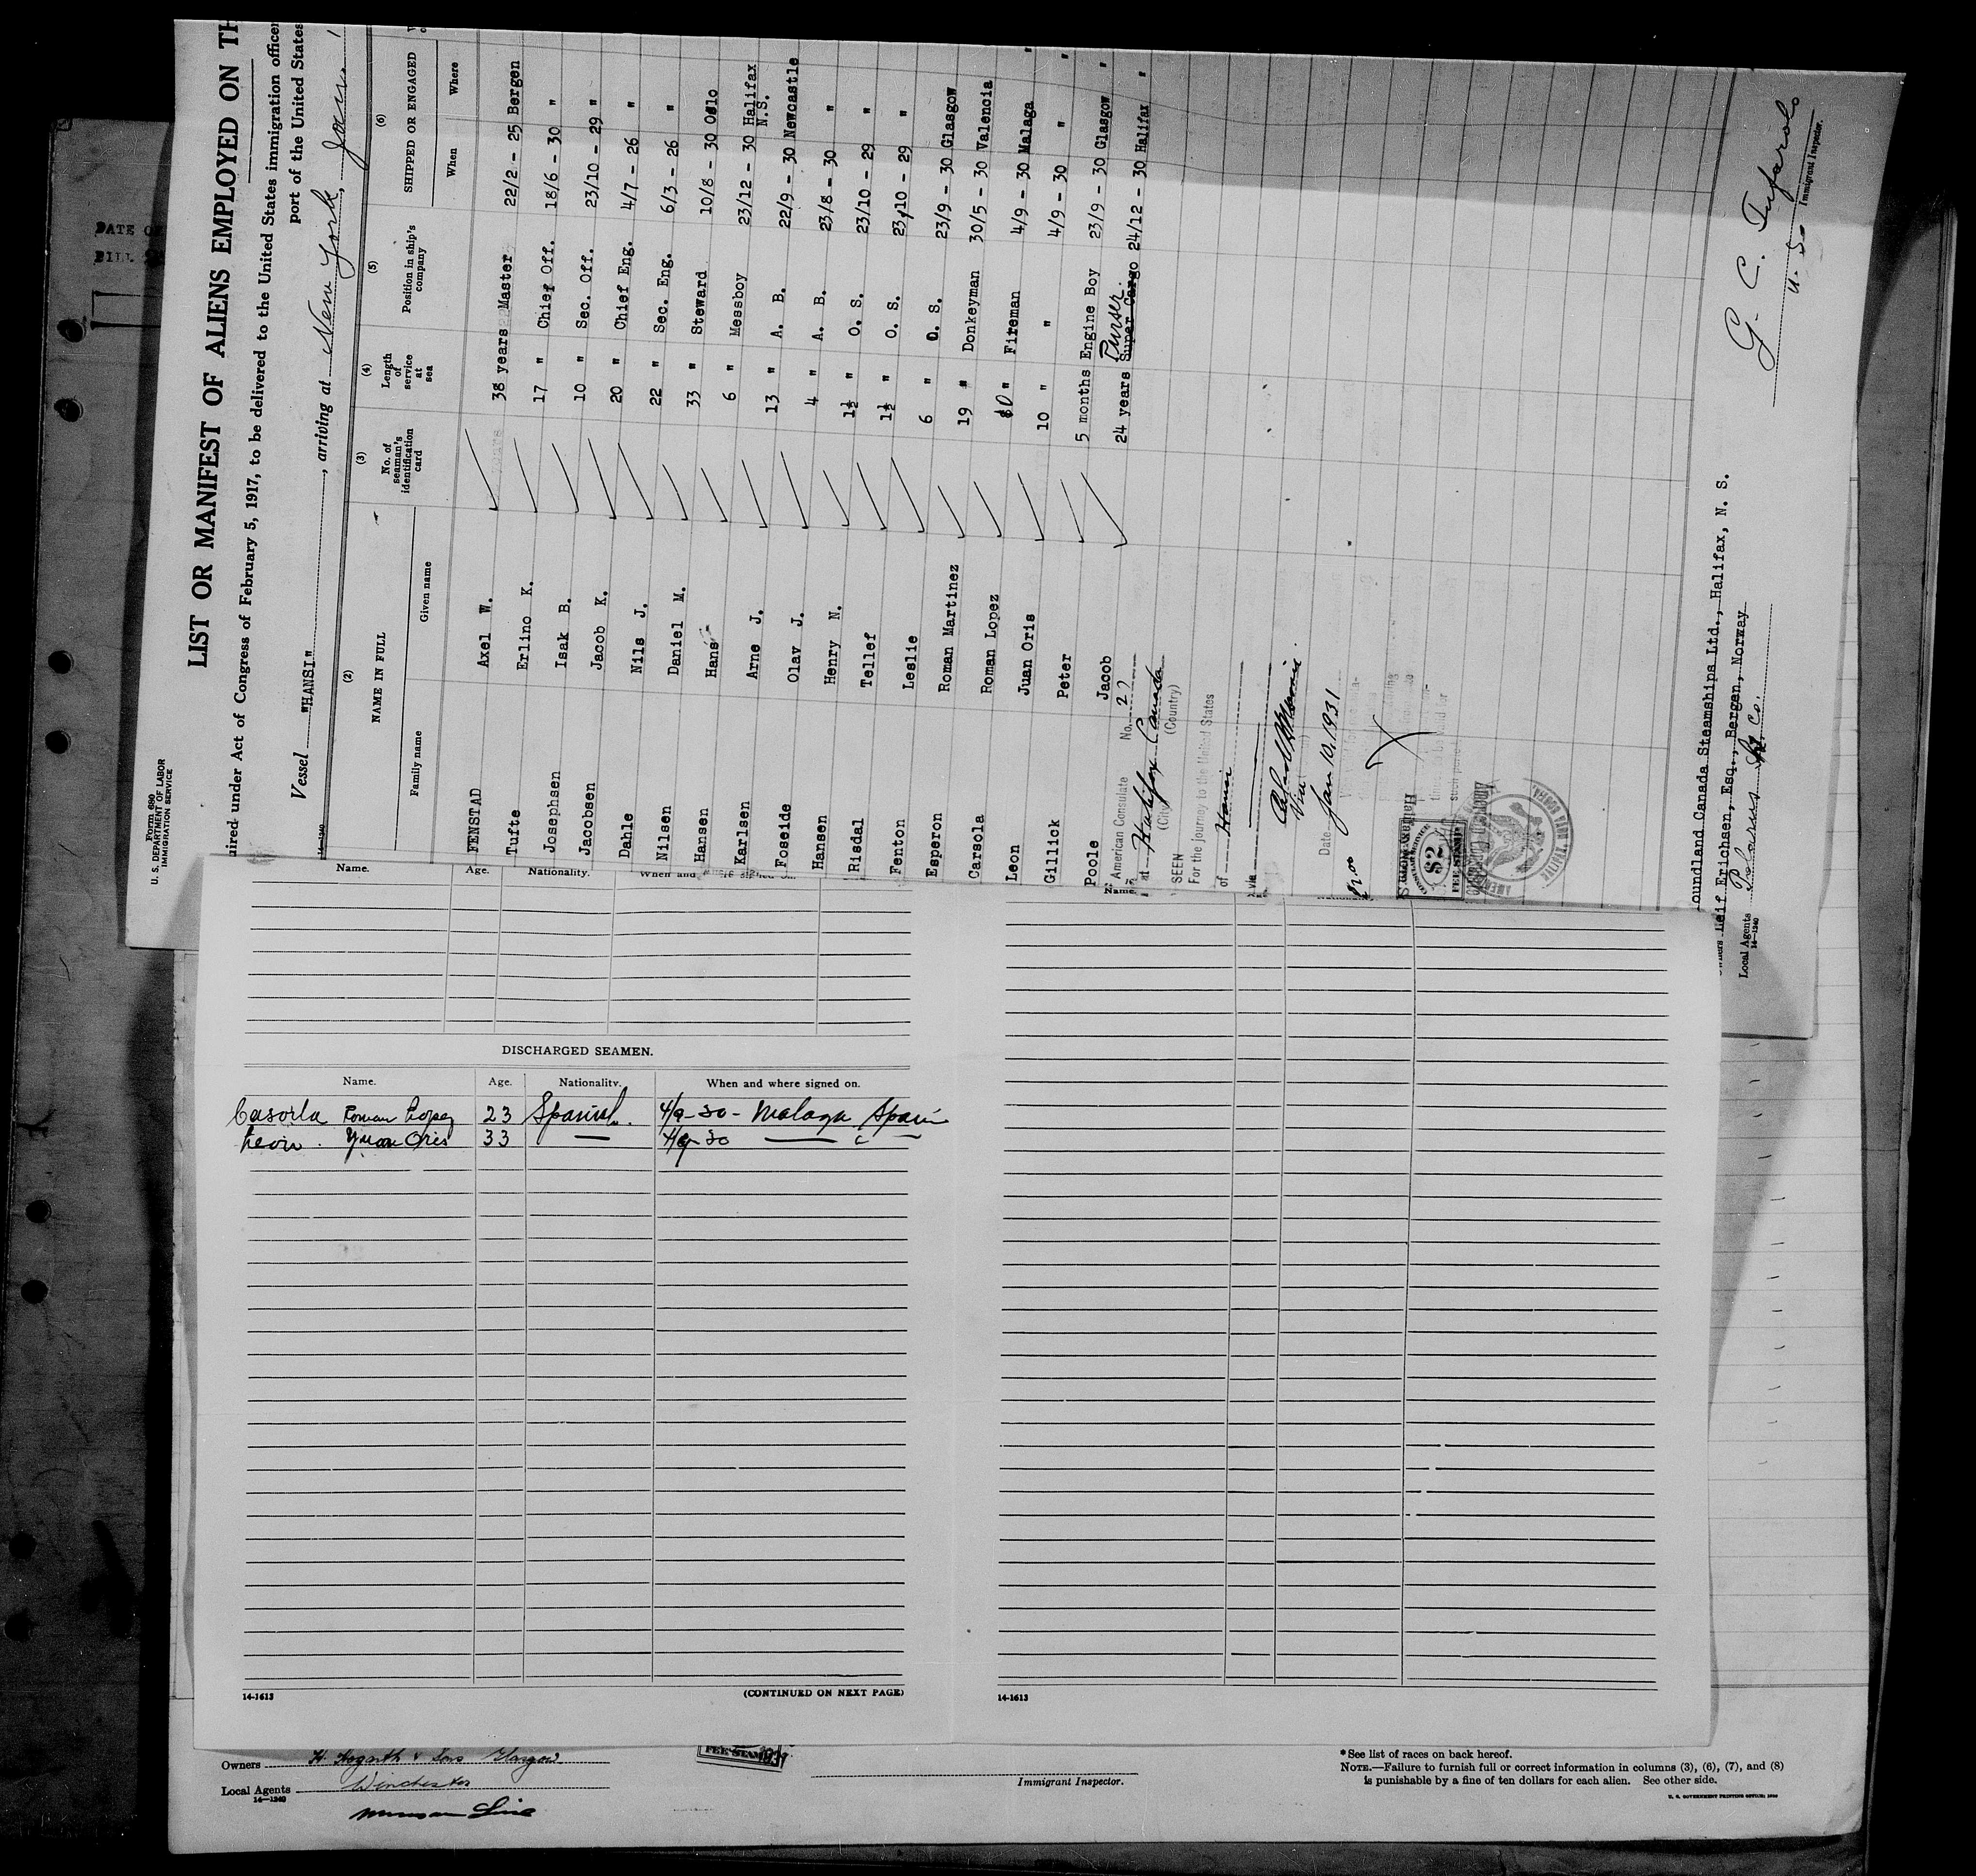 Form 680
U. S. DEPARTMENT OF LABOR
IMMIGRATION SERVICE
LIST OR MANIFEST OF ALIENS EMPLOYED ON TH
uired under Act of Congress of February 5, 1917, to be delivered to the United States immigration officer
port of the United States
Vessel "HANSI", arriving at New York,
(2) (3) (4) (5) (6)
NAME IN FULL No. of seaman's identification card Length of service at sea Position in ship's company SHIPPED OR ENGAGED
Family name Given name When Where
FENSTAD Axel W. 38 years Master 22/2 - 25 Bergen
Tufte Erlino K. 17 " Chief Off. 18/6 - 30 "
Josephsen Isak B. 10 " Sec. Off. 23/10 - 29 "
Jacobsen Jacob K. 20 " Chief Eng. 4/7 - 26 "
Dahle Nils J. 22 " Sec. Eng. 6/3 - 26 "
Nilsen Daniel M. 33 " Steward 10/8 - 30 Oslo
Hansen Hans 6 " Messboy 23/12 - 30 Halifax N.S.
Karlsen Arne J. 13 " A. B. 22/9 - 30 Newcastle
Foseide Olav J. 4 " A. B. 23/8 - 30 "
Hansen Henry N. 1½ " O. S. 23/10 - 29 "
Risdal Tellef 1½ " O. S. 23/10 - 29 "
Fenton Leslie 6 " O. S. 23/9 - 30 Glasgow
Esperon Roman Martinez 19 " Donkeyman 30/5 - 30 Valencia
Carsola Roman Lopez 10 " Fireman 4/9 - 30 Malaga "
Leon Juan Oris 10 " " 4/9 - 30 " "
Gillick Peter 5 months Engine Boy 23/9 - 30 Glasgow "
Poole Jacob 24 years Super Cargo Purser. 24/12 - 30 Halifax "
American Consulate No.
at Halifax Canada
(City) (Country)
SEEN
For the journey to the United States
of Hansi
via
Date Jan 10, 1931
$2
FEE STAMP
oundland Canada Steamships Ltd., Halifax, N. S.
Leif Erichsen, Esq., Bergen, Norway
Local Agents
14-1240
G. C.
U. S. Immigrant Inspector.
DATE OF
BILL
Name. Age. Nationality. When and
DISCHARGED SEAMEN.
Name. Age. Nationality. When and where signed on.
Casorla Roman Lopez 23 Spanish. 4/9-30 - Malaga Spain
Leon. Yuan Oris 33 — 4/9-30 —
14-1613 (CONTINUED ON NEXT PAGE)
14-1613
Owners H. Hogarth & Sons Glasgow
Local Agents Winchester
14-1240
Munson Line
FEE STAMP
Immigrant Inspector.
*See list of races on back hereof.
NOTE.—Failure to furnish full or correct information in columns (3), (6), (7), and (8)
is punishable by a fine of ten dollars for each alien. See other side.